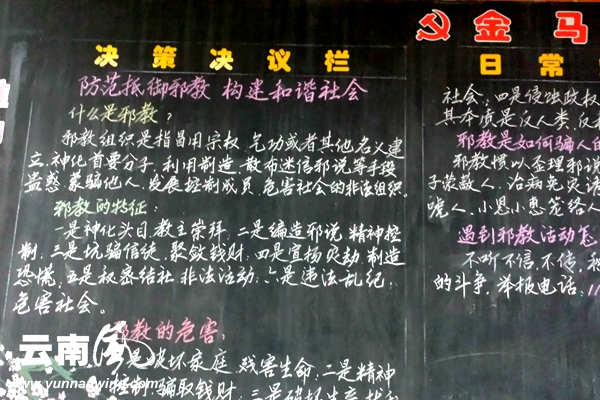 决策决议栏
防范抵御邪教 构建和谐社会
什么是邪教?
邪教组织是指冒用宗权、气功或者其他名义建
立、神化首要分子,利用制造、散布迷信邪说等手段
蛊惑、蒙骗他人,发展控制成员,危害社会的非法组织。
邪教的特征:
一是神化头目,教主崇拜,二是编造邪说,精神控
制,三是坑骗信徒,聚敛钱财,四是宣扬灾劫,制造
恐慌,五是秘密结社,非法活动,六是违法乱纪,
危害社会。
邪教的危害:
是破坏家庭,残害生命,二是精神
控制,骗取钱财,三是破坏生产
金马
日常
社会,四是侵蚀政权
其本质是反人类、反
邪教是如何骗人的
邪教惯以歪理邪说
子蒙蔽人,治病免灾
唬人,小恩小惠笼络人
遇到邪教活动怎
不听、不信、不传,
的斗争,举报电话:11
云南
www.yunnanwing.com